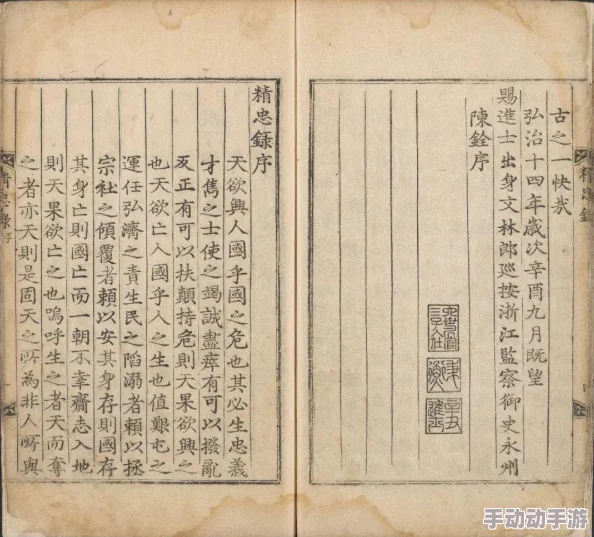 精忠錄
古之一快哉
弘治十四年歲次辛酉九月既望
賜進士出身文林郎廵按浙江監察御史永州
陳銓序
辛丑進士
精忠錄序
天欲興人國乎國之危也其必生忠義
才雋之士使之竭誠盡瘁有可以撥亂
反正有可以扶顛持危則天果欲興之
也天欲亡人國乎人之生也值艱屯之
運任弘濟之責生民之陷溺者賴以拯
宗社之傾覆者賴以安其身存則國存
其身亡則國亡而一朝不幸齎志入地
則天果欲亡之也嗚呼生之者天而奪
之者亦天則是固天之所為非人所與
精忠錄序
手动动手游